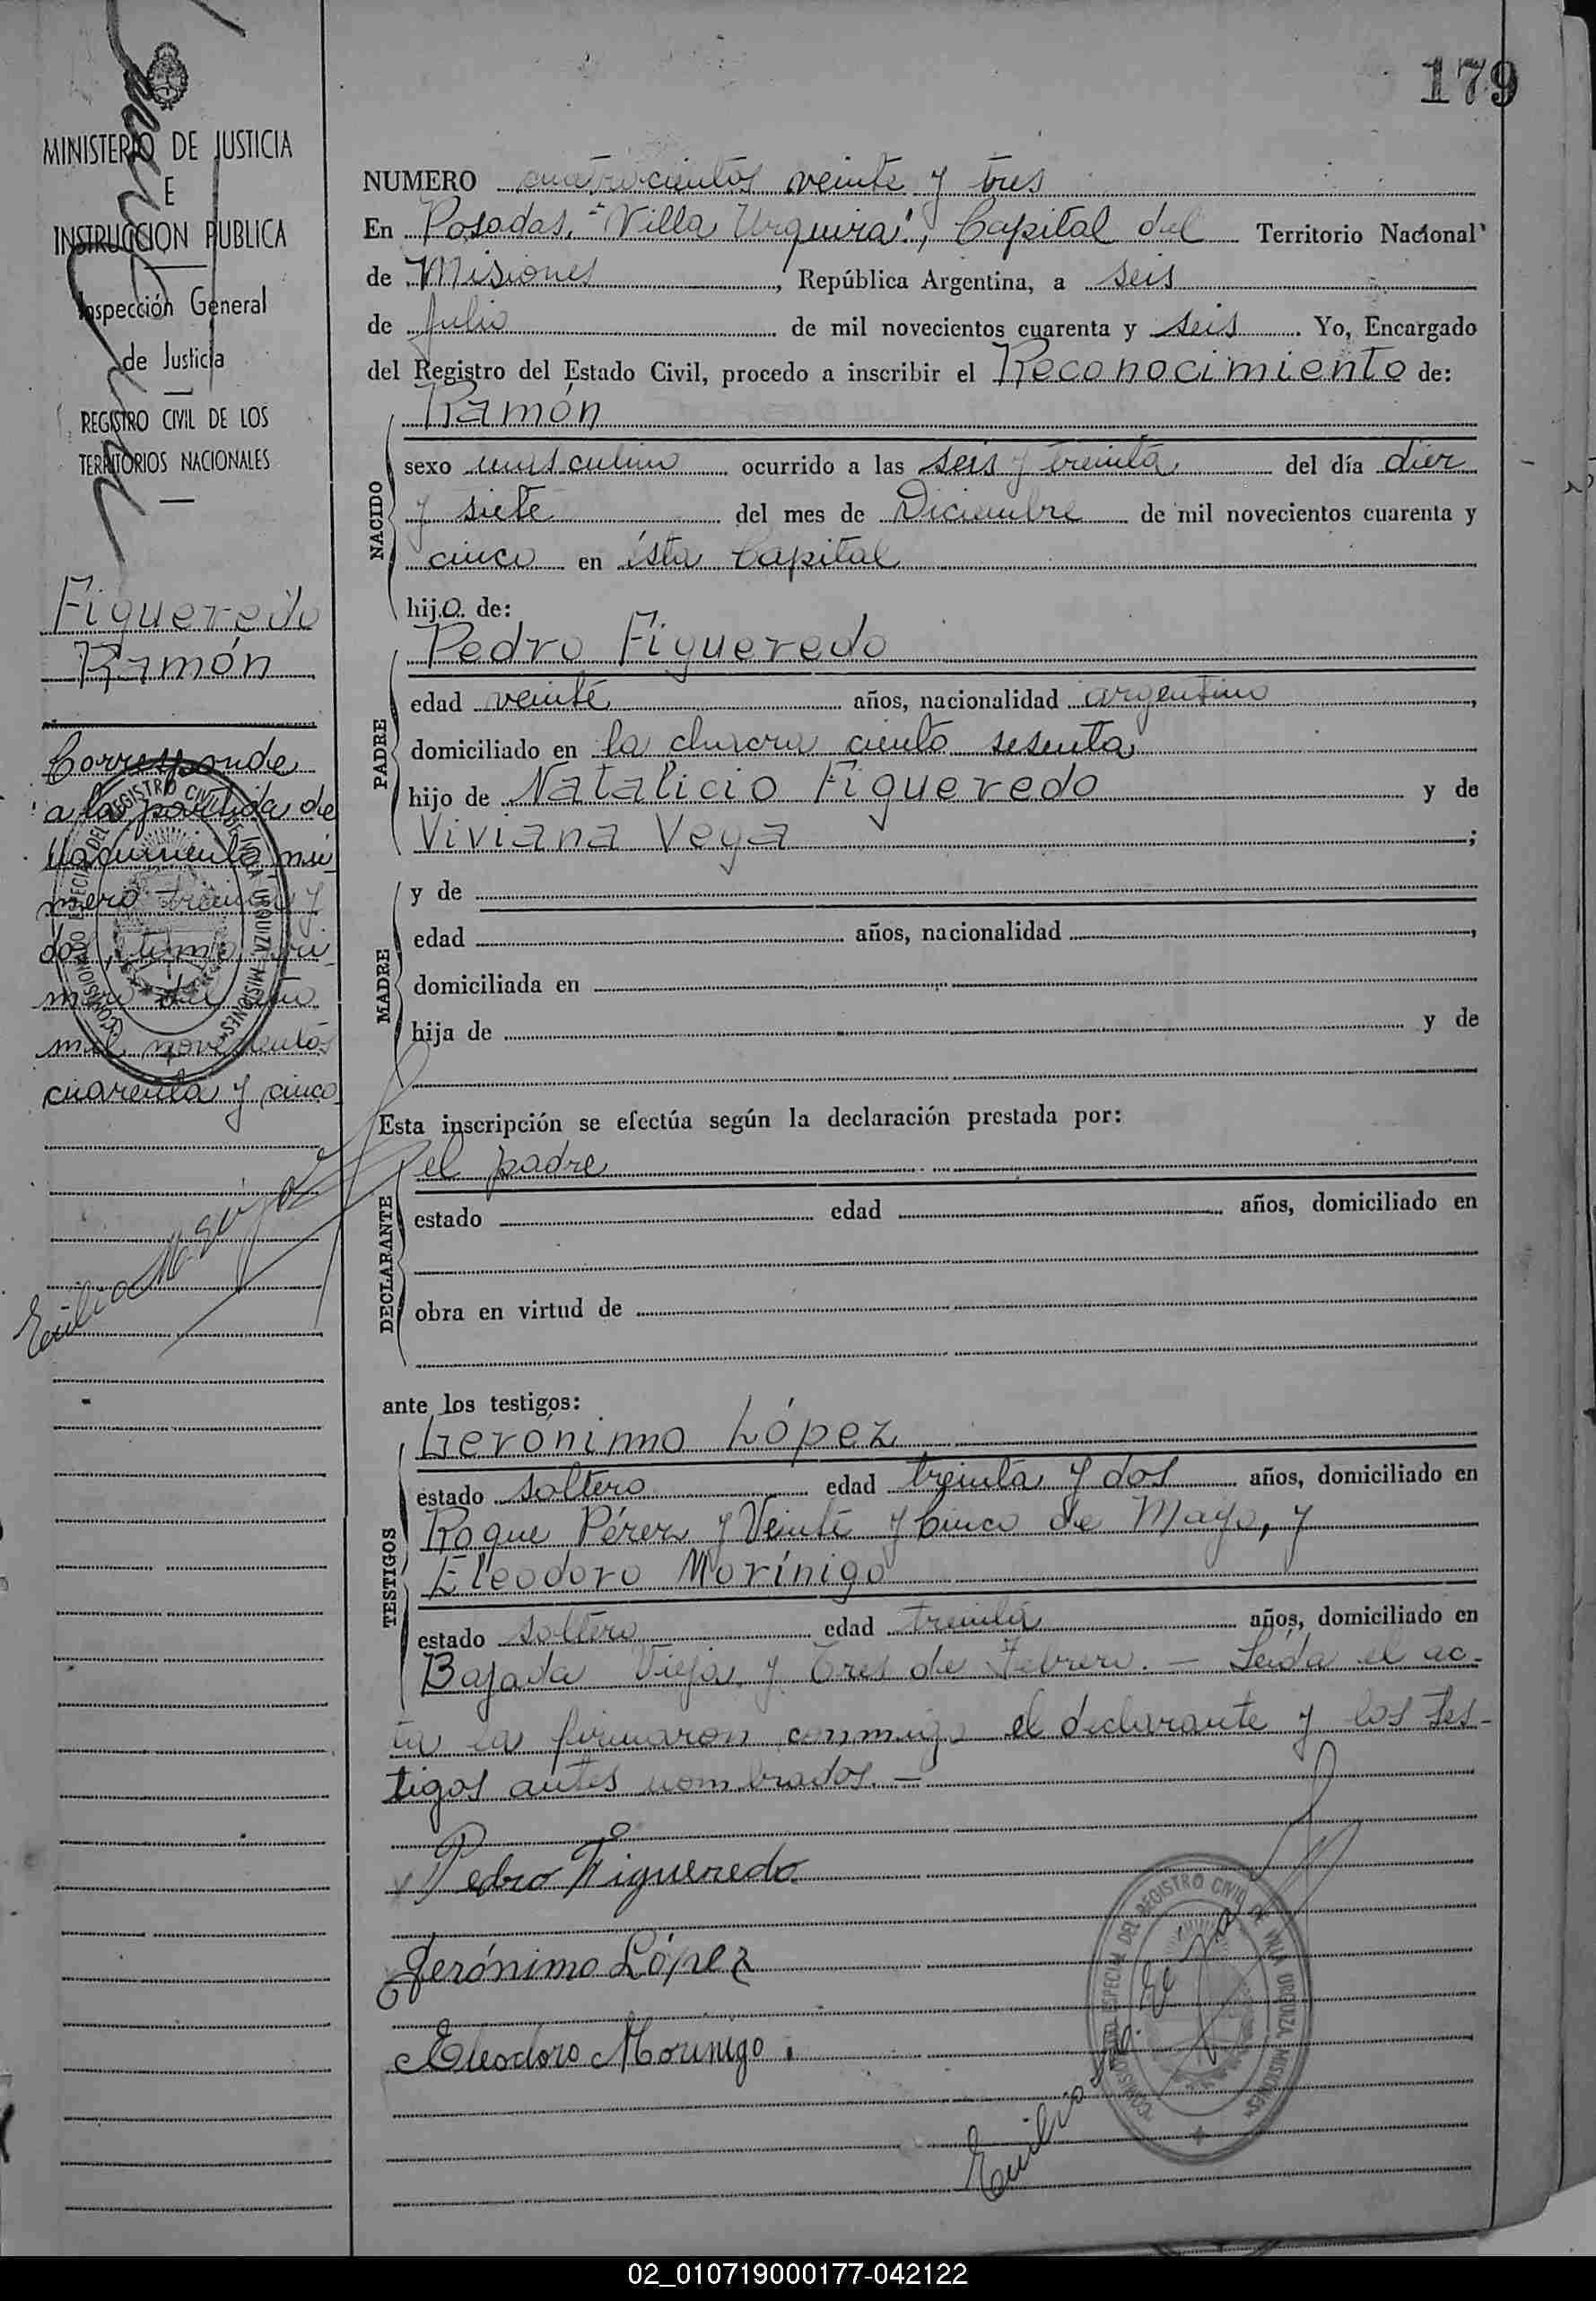 179
MINISTERIO DE JUSTICIA
E
INSTRUCCION PUBLICA
Inspección General
de Justicia
REGISTRO CIVIL DE LOS
TERRITORIOS NACIONALES
Figueredo
Ramón
Corresponde
a la partida de
Nacimiento nú-
mero treinta y
dos, tomo pri-
mero del año
mil novecientos
cuarenta y cinco
NUMERO cuatrocientos veinte y tres
En Posadas, "Villa Urquiza", Capital del Territorio Nacional
de Misiones, República Argentina, a seis
de Julio de mil novecientos cuarenta y seis. Yo, Encargado
del Registro del Estado Civil, procedo a inscribir el Reconocimiento de:
Ramón
NACIDO
sexo masculino ocurrido a las seis y treinta del día diez
y siete del mes de Diciembre de mil novecientos cuarenta y
cinco en ésta Capital
hijo de:
Pedro Figueredo
PADRE
edad veinte años, nacionalidad argentino,
domiciliado en la chacra ciento sesenta
hijo de Natalicio Figueredo y de
Viviana Vega;
MADRE
y de
edad años, nacionalidad,
domiciliada en
hija de y de
Esta inscripción se efectúa según la declaración prestada por:
el padre
DECLARANTE
estado edad años, domiciliado en
obra en virtud de
ante los testigos:
Gerónimo López
TESTIGOS
estado soltero edad treinta y dos años, domiciliado en
Roque Pérez y Veinte y Cinco de Mayo, y
Eleodoro Morínigo
estado soltero edad treinta años, domiciliado en
Bajada Vieja y Tres de Febrero. - Leída el ac-
ta la firmaron conmigo el declarante y los tes-
tigos antes nombrados. -
Pedro Figueredo
Jerónimo López
Eleodoro Morinigo.
COMISIONADO ESPECIAL DEL REGISTRO CIVIL DE VILLA URQUIZA, MISIONES
Emilio
02_010719000177-042122